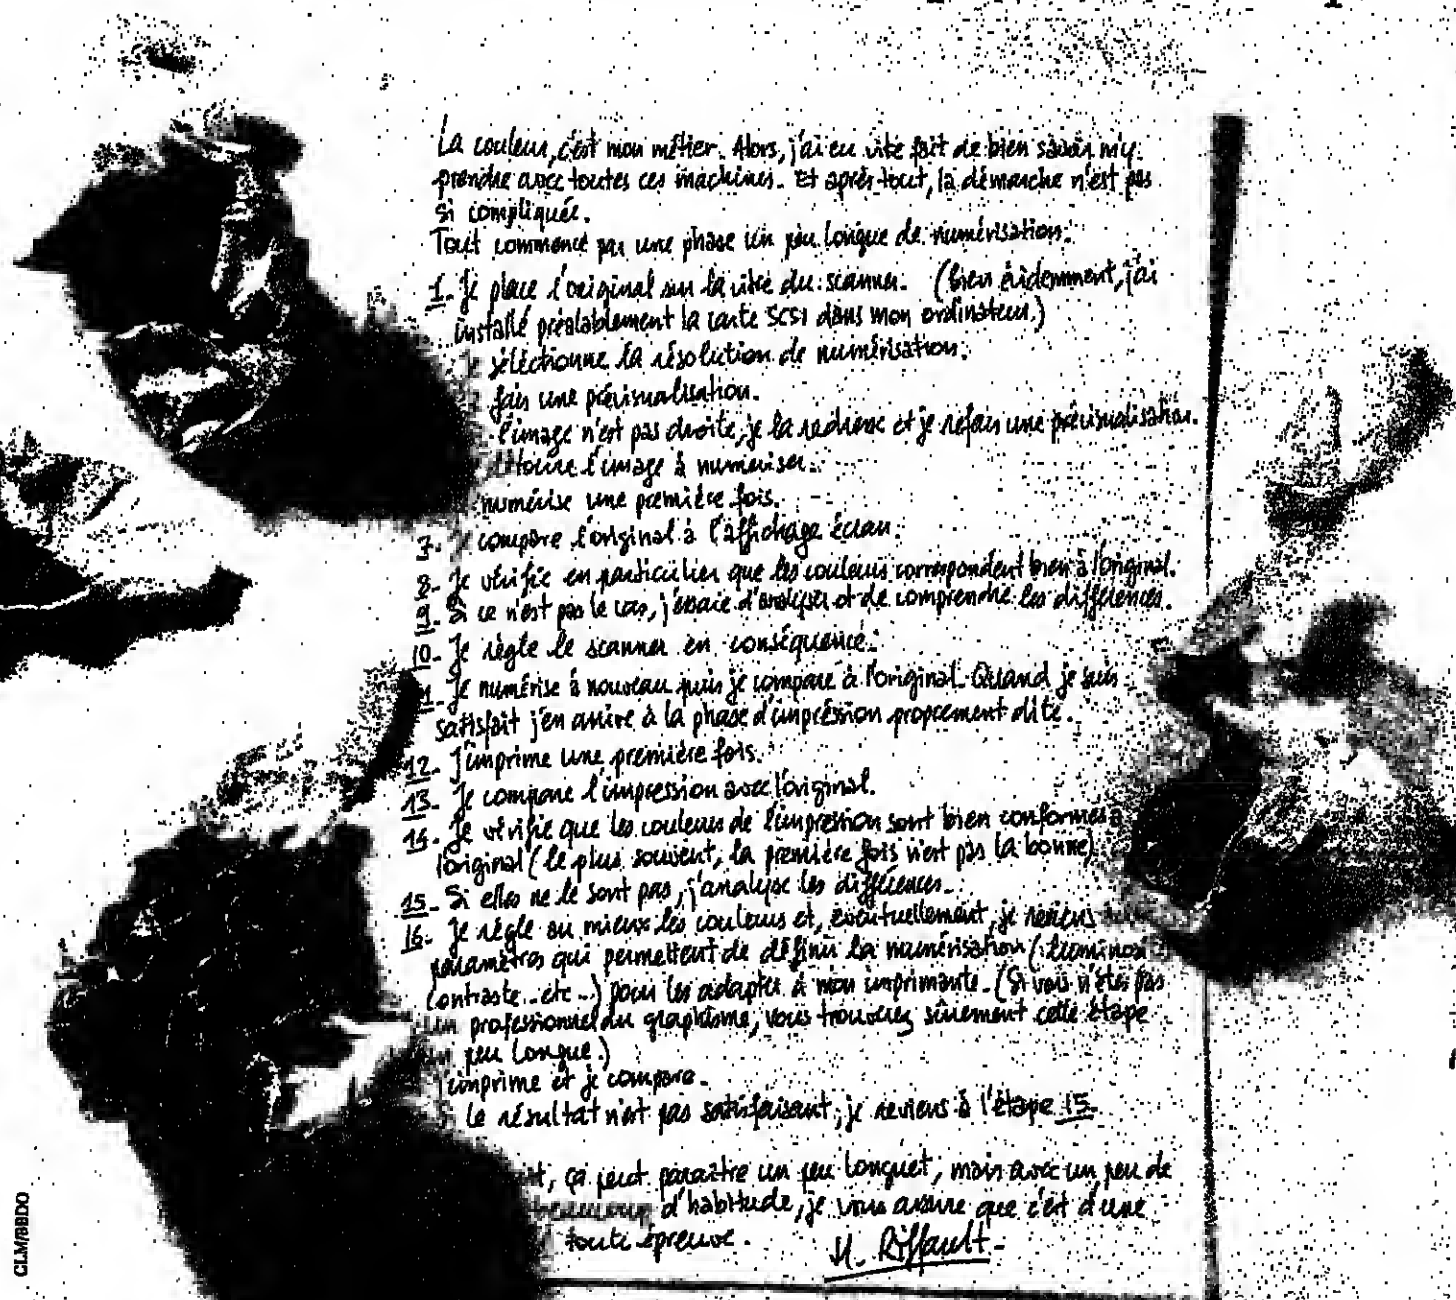 La couleur, c'est mon métier. Alors, j'ai eu vite fait de bien savoir m'y
prendre avec toutes ces machines. Et après tout, la démarche n'est pas
si compliquée.
Tout commence par une phase un peu longue de numérisation.
1. Je place l'original sur la vitre du scanner. (bien évidemment, j'ai
installé préalablement la carte SCSI dans mon ordinateur.)
je séléctionne la résolution de numérisation.
fais une prévisualisation.
l'image n'est pas droite, je la redresse et je refais une prévisualisation.
détoure l'image à numériser.
numérise une première fois.
7. Je compare l'original à l'affichage écran.
8. Je vérifie en particulier que les couleurs correspondent bien à l'original.
9. Si ce n'est pas le cas, j'essaie d'analyser et de comprendre les différences.
10. Je règle le scanner en conséquence.
11. Je numérise à nouveau puis je compare à l'original. Quand je suis
satisfait j'en arrive à la phase d'impression proprement dite.
12. J'imprime une première fois.
13. Je compare l'impression avec l'original.
14. Je vérifie que les couleurs de l'impression sont bien conformes à
l'original (le plus souvent, la première fois n'est pas la bonne).
15. Si elles ne le sont pas, j'analyse les différences.
16. Je règle au mieux les couleurs et, éventuellement, je reviens
paramètres qui permettent de définir la numérisation (luminosi
contraste.. etc..) pour les adapter à mon imprimante. (Si vous n'êtes pas
un professionnel du graphisme, vous trouverez sûrement cette étape
un peu longue.)
j'imprime et je compare.
le résultat n'est pas satisfaisant, je reviens à l'étape 15.
ça peut paraître un peu longuet, mais avec un peu de
beaucoup d'habitude, je vous assure que c'est d'une
toute épreuve.
M. Riffault
CLM/BBDO